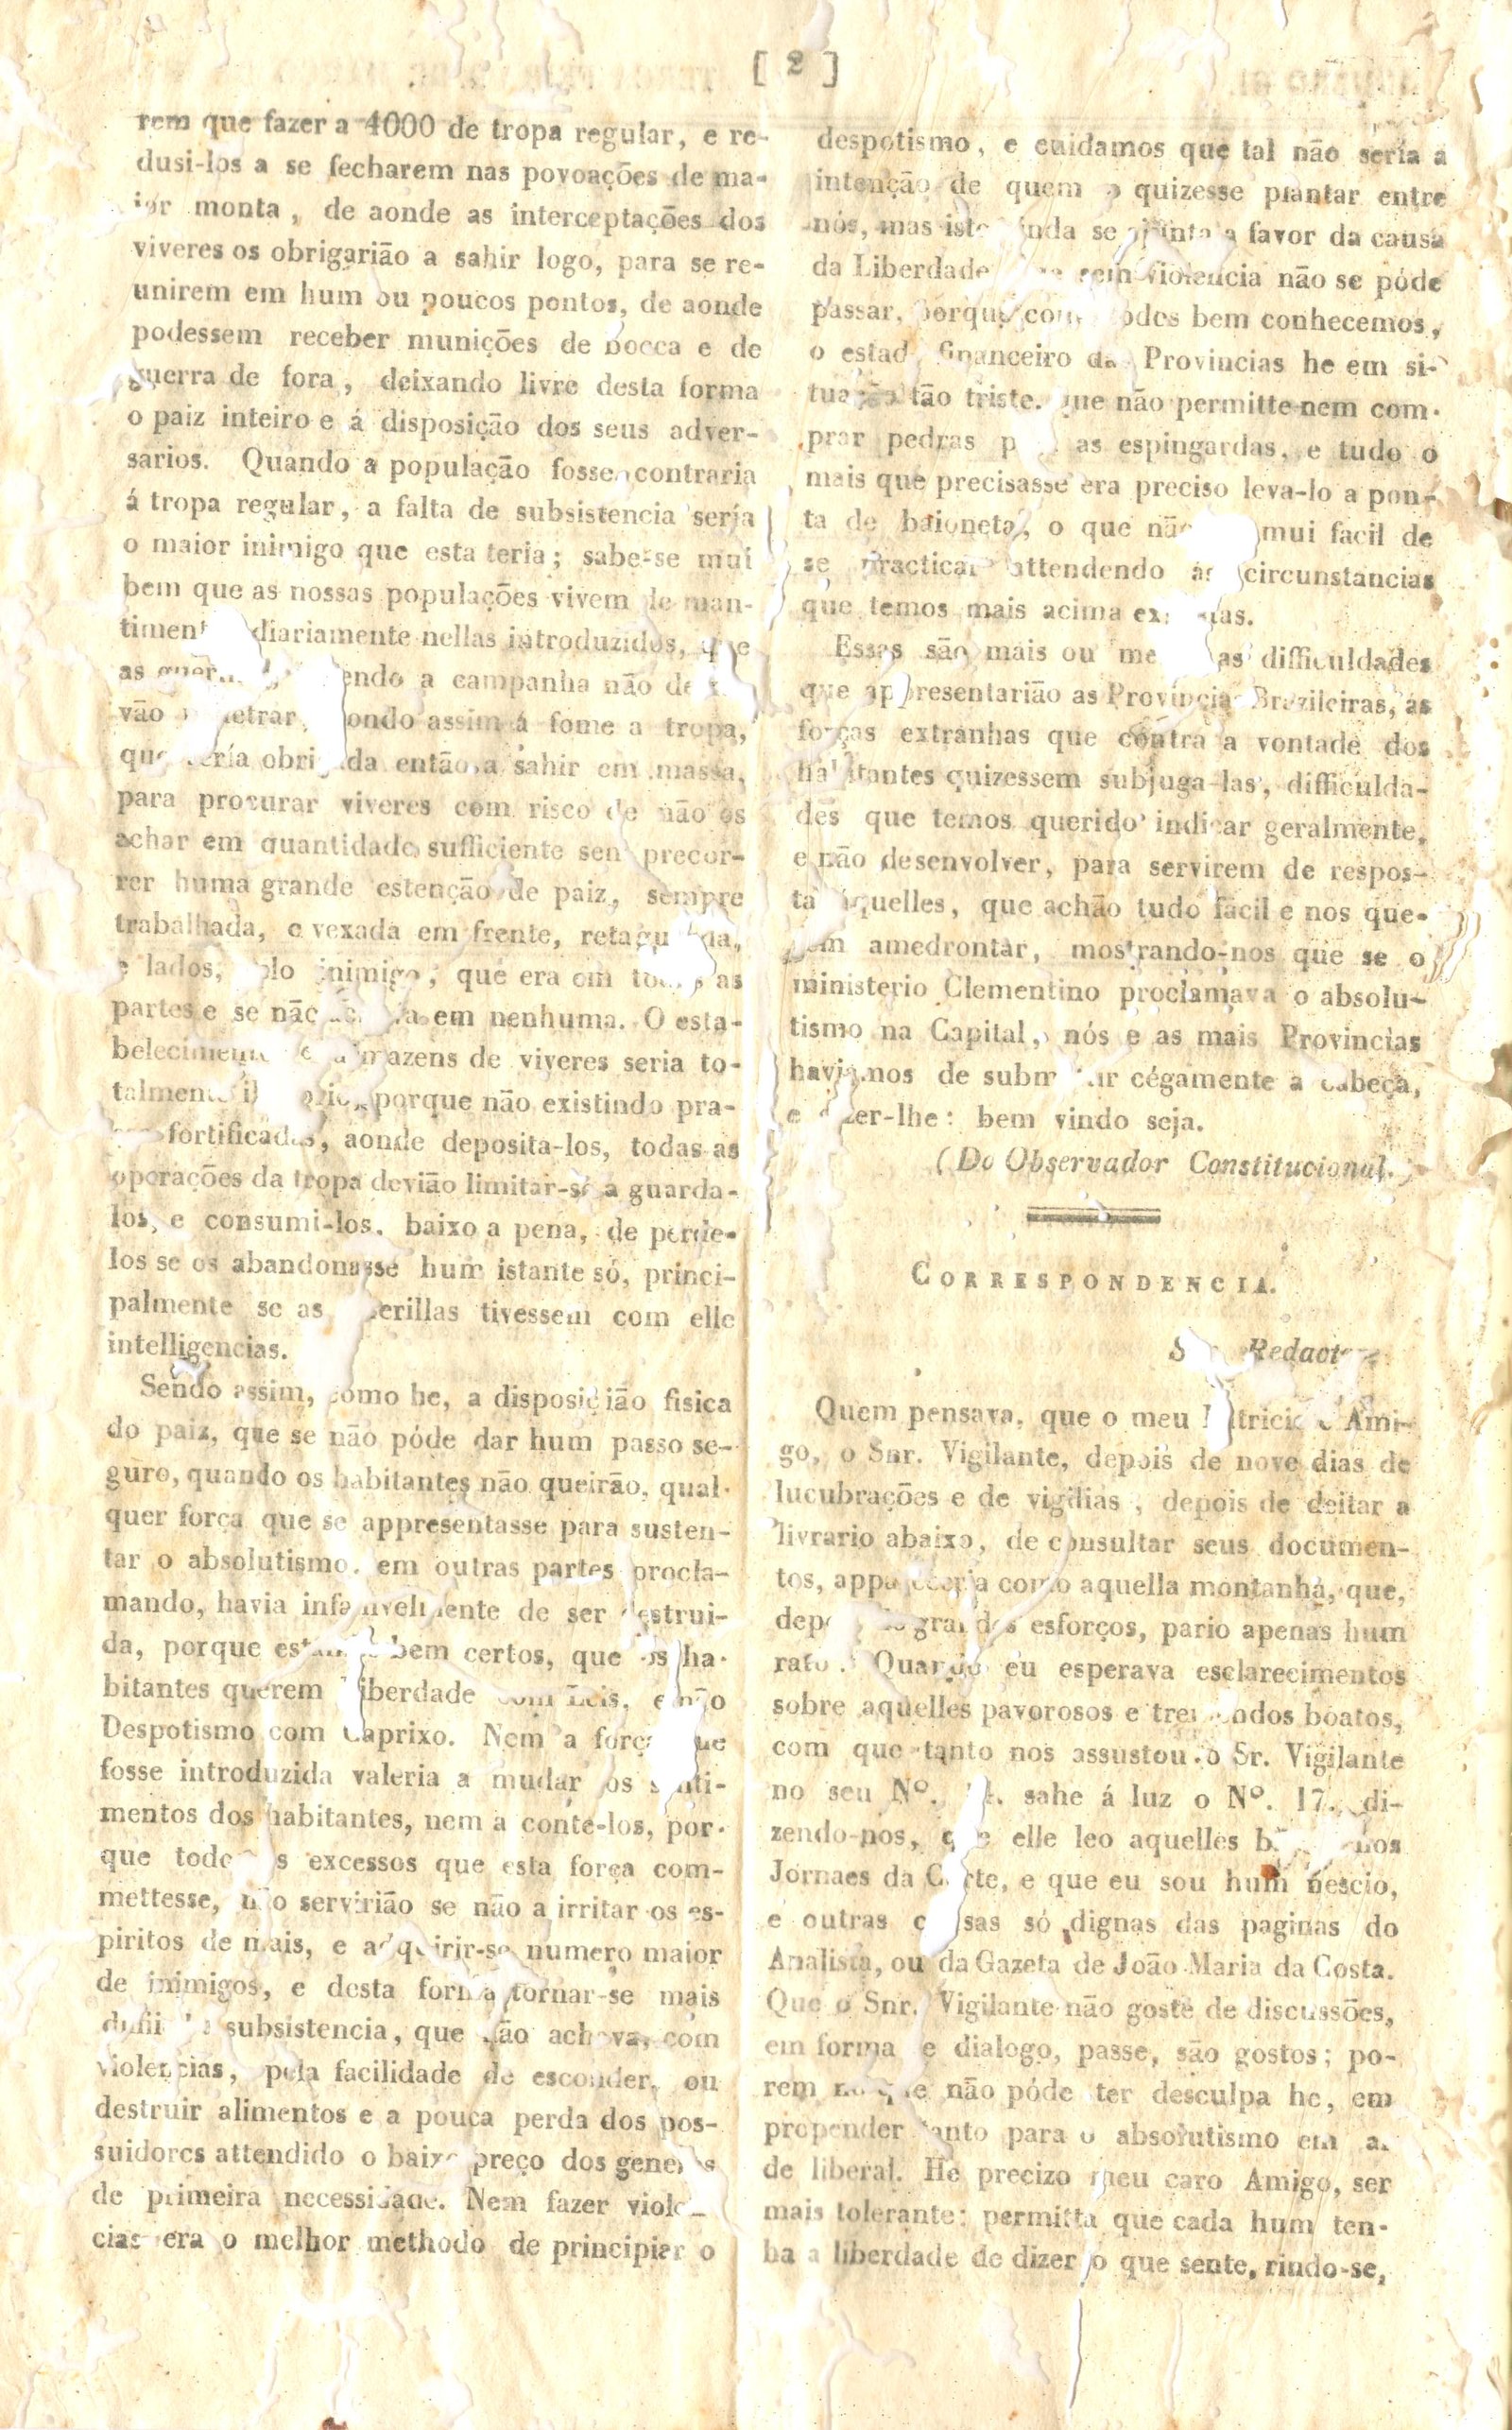 [ 2 ]
rem que fazer a 4000 de tropa regular, e re-
dusi-los a se fecharem nas povoações de ma-
ior monta, de aonde as interceptações dos
viveres os obrigarião a sahir logo, para se re-
unirem em hum ou poucos pontos, de aonde
podessem receber munições de bocca e de
guerra de fora, deixando livre desta forma
o paiz inteiro e á disposição dos seus adver-
sarios. Quando a população fosse contraria
á tropa regular, a falta de subsistencia sería
o maior inimigo que esta teria; sabe-se mui
bem que as nossas populações vivem de man-
diariamente nellas introduzidos, que
as a campanha não
vão assim á fome a tropa,
que sería obrigada então a sahir em massa,
para procurar viveres com risco de não os
achar em quantidade sufficiente sem precor-
rer huma grande estenção de paiz, sempre
trabalhada, e vexada em frente, retaguarda,
e lados, pelo inimigo, que era em todas as
partes e se não em nenhuma. O esta-
belecimento de armazens de viveres seria to-
talmente porque não existindo pra-
fortificadas, aonde deposita-los, todas as
operações da tropa devião limitar-se a guarda-
los, e consumi-los, baixo a pena, de perde-
los se os abandonasse hum istante só, princi-
palmente se as guerillas tivessem com elle
intelligencias.
Sendo assim, como he, a disposição fisica
do paiz, que se não póde dar hum passo se-
guro, quando os habitantes não queirão, qual-
quer força que se appresentasse para susten-
tar o absolutismo, em outras partes procla-
mando, havia de ser destrui-
da, porque estamos bem certos, que os ha-
bitantes querem Liberdade com Leis, e não
Despotismo com Caprixo. Nem a força que
fosse introduzida valeria a mudar os senti-
mentos dos habitantes, nem a conte-los, por-
que todos os excessos que esta força com-
mettesse, não servirião se não a irritar os es-
piritos de mais, e adquirir-se numero maior
de inimigos, e desta forma tornar-se mais
subsistencia, que não achava, com
violencias, pela facilidade de esconder, ou
destruir alimentos e a pouca perda dos pos-
suidores attendido o baixo preço dos generos
de primeira necessidade. Nem fazer violen-
cias era o melhor methodo de principiar o
despotismo, e cuidamos que tal não sería a
intenção de quem o quizesse plantar entre
nós, mas isto ainda se ajunta a favor da causa
da Liberdade que sem violencia não se póde
passar, porque como todos bem conhecemos,
o estado financeiro das Provincias he em si-
tuação tão triste, que não permitte nem com-
prar pedras para as espingardas, e tudo o
mais que precisasse era preciso leva-lo a pon-
ta de baioneta, o que não mui facil de
se practicar attendendo as circunstancias
que temos mais acima
Essas são mais ou menos as difficuldades
que appresentarião as Provincias Brazileiras, ás
forças extranhas que contra a vontade dos
habitantes quizessem subjuga-las, difficulda-
des que temos querido indicar geralmente,
e não desenvolver, para servirem de respos-
ta áquelles, que achão tudo facil e nos que-
rem amedrontar, mostrando-nos que se o
ministerio Clementino proclamava o absolu-
tismo na Capital, nós e as mais Provincias
haviamos de cégamente a cabeça,
e dizer-lhe: bem vindo seja.
(Do Observador Constitucional.)
CORRESPONDENCIA.
Redactor
Quem pensava, que o meu Patricio e Ami-
go, o Snr. Vigilante, depois de nove dias de
lucubrações e de vigilias, depois de deitar a
livrario abaixo, de consultar seus documen-
tos, appareceria como aquella montanha, que,
depois de grandes esforços, pario apenas hum
rato. Quando eu esperava esclarecimentos
sobre aquelles pavorosos e tremendos boatos,
com que tanto nos assustou o Sr. Vigilante
no seu Nº. sahe á luz o Nº. 17, di-
zendo-nos, que elle leo aquelles nos
Jornaes da Corte, e que eu sou hum nescio,
e outras cousas só dignas das paginas do
Analista, ou da Gazeta de João Maria da Costa.
Que o Snr. Vigilante não goste de discussões,
em forma de dialogo, passe, são gostos; po-
rem no que não póde ter desculpa he, em
propender tanto para o absolutismo em ar
de liberal. He precizo meu caro Amigo, ser
mais tolerante: permitta que cada hum ten-
ha a liberdade de dizer o que sente, rindo-se,